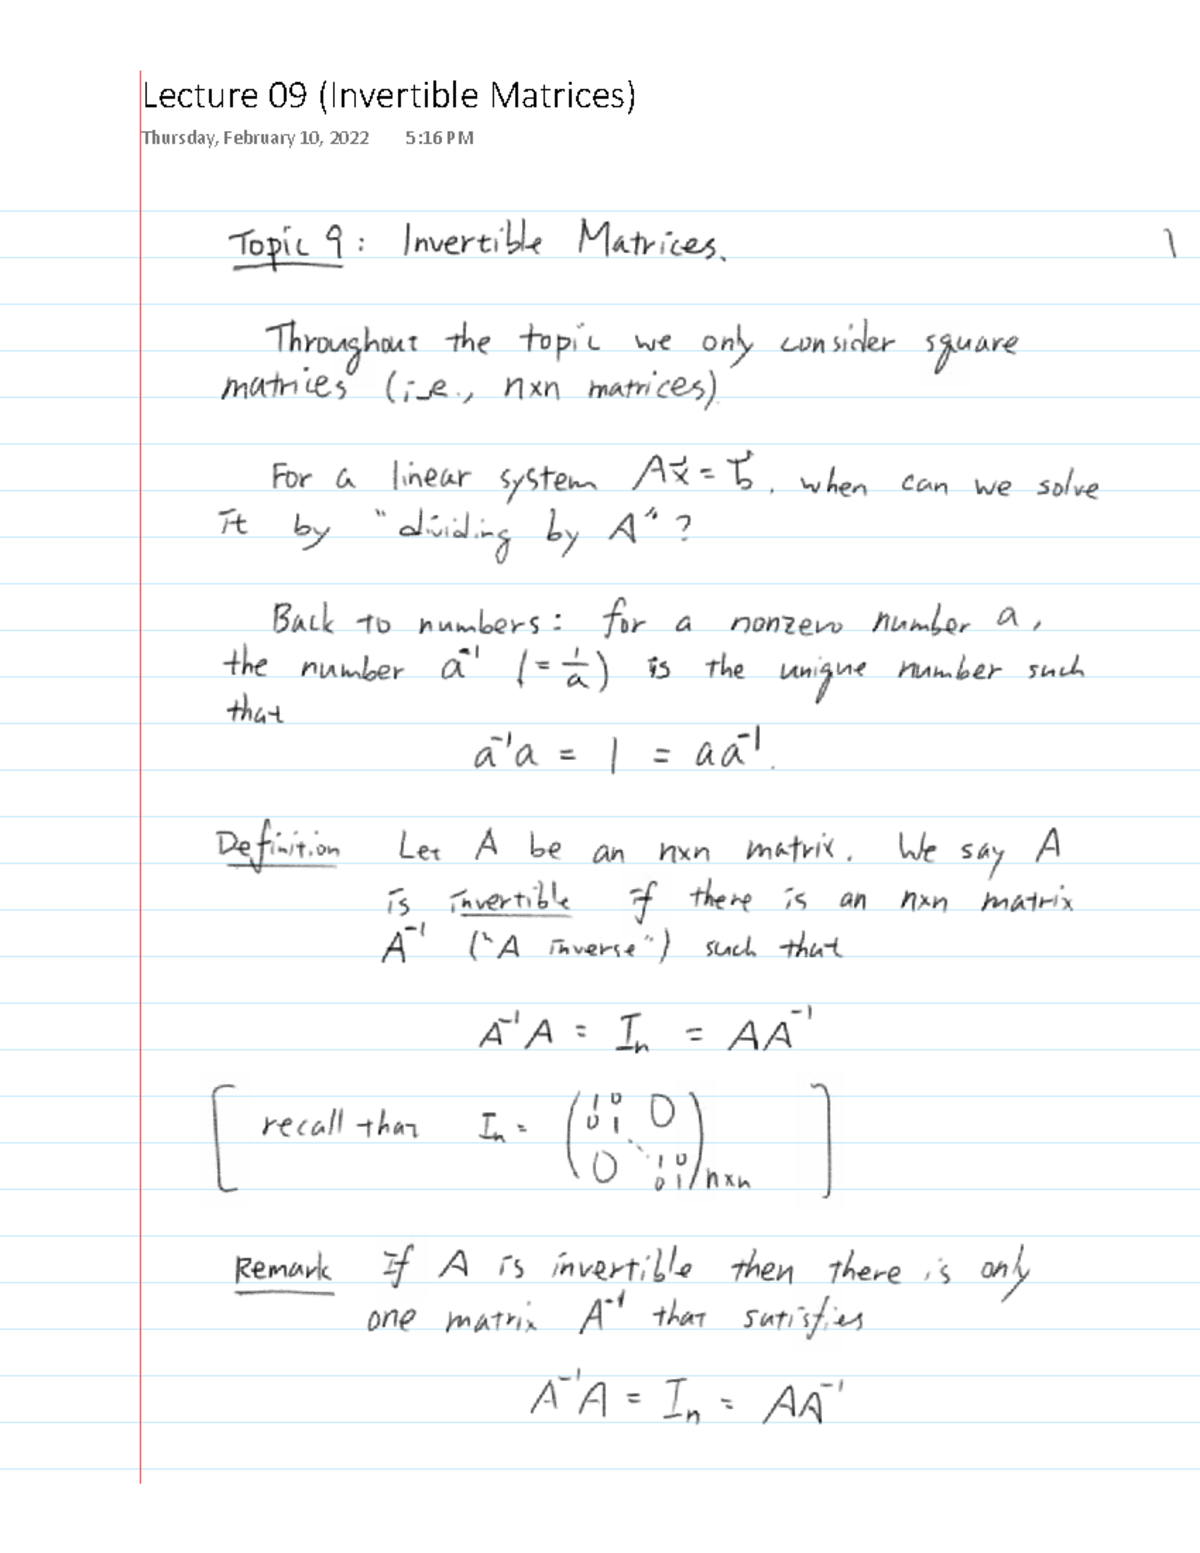 Lecture 09 (Invertible Matrices)
Thursday, February 10, 2022 5:16 PM
Topic 9: Invertible Matrices. 1
Throughout the topic we only consider square
matrices (i.e., n×n matrices).
For a linear system Ax⃗ = b⃗, when can we solve
it by "dividing by A"?
Back to numbers: for a nonzero number a,
the number a⁻¹ (= 1/a) is the unique number such
that
a⁻¹a = 1 = aa⁻¹.
Definition Let A be an n×n matrix. We say A
is invertible if there is an n×n matrix
A⁻¹ ("A inverse") such that
A⁻¹A = Iₙ = AA⁻¹
[ recall that Iₙ = ( 1 0 0
0 1
⋱ 1 0
0 0 1 )n×n ]
Remark If A is invertible then there is only
one matrix A⁻¹ that satisfies
A⁻¹A = Iₙ = AA⁻¹